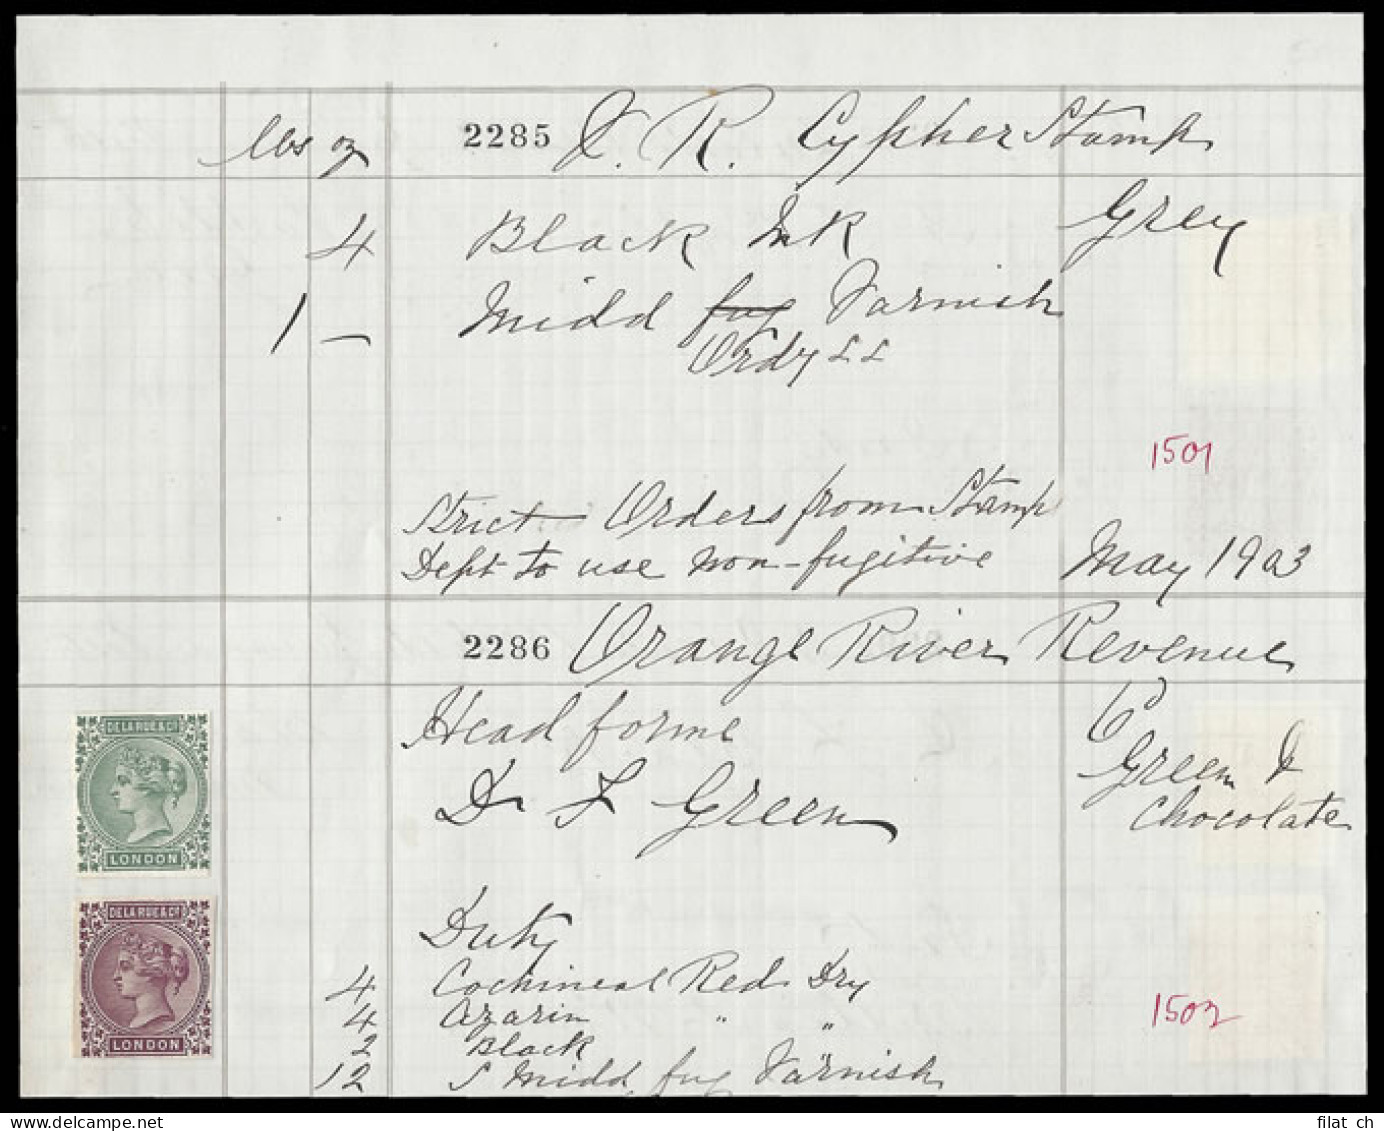 lbs oz 2285 I. R. Cypher Stamp
4 Black Ink Grey
1 — Midd fug Varnish
Ordy
1501
Strict Orders from Stamp
Dept to use non-fugitive May 1903
2286 Orange River Revenue
Head forme
Green &
D F Green
Chocolate
DE LA RUE & Co
LONDON
DE LA RUE & Co
LONDON
Duty
4 Cochineal Red Dry
4 Azarin " "
1502
2 Black
12 S Midd fug Varnish
filat ch